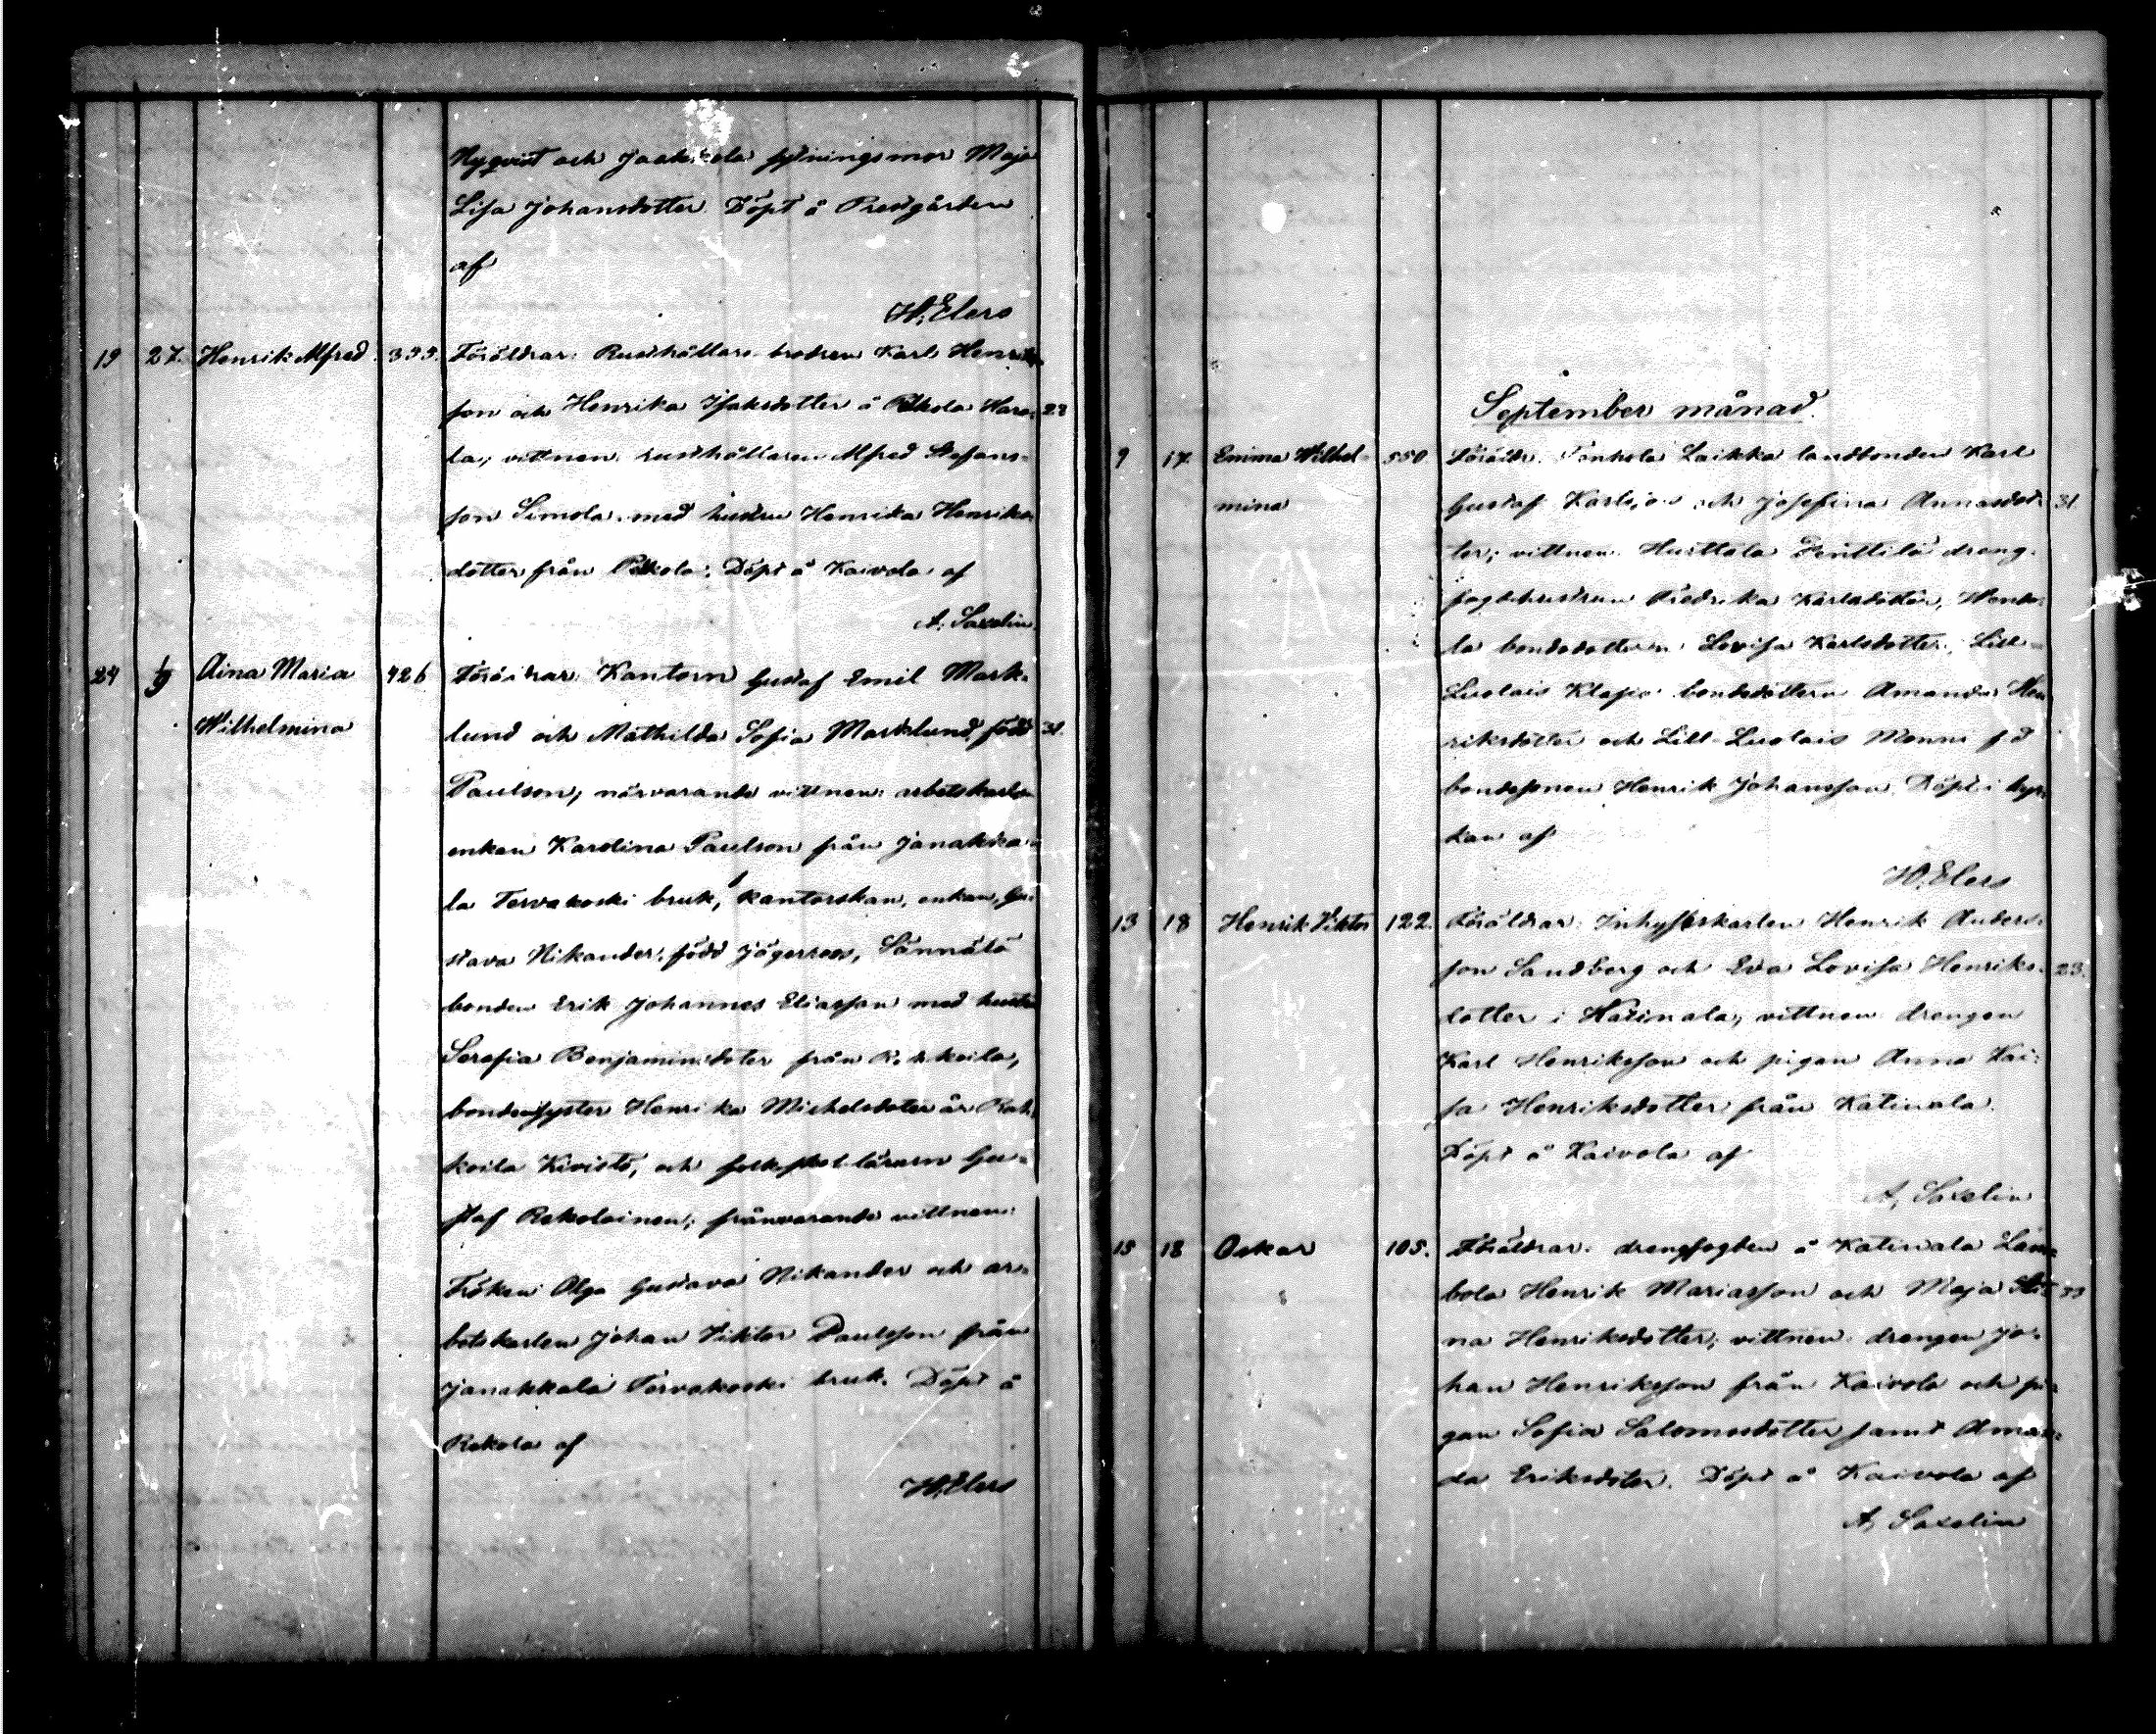 Nyqvist och Jaakkola spinningsmor Maja
Lisa Johansdotter. Döpt å Prestgården
af
H; Elers
19 27. Henrik Alfred 399. Föräldrar: Rusthållare brodren Karl Henriks-
son och Henrika Isaksdotter å Pekola Haro- 23
la; vittnen: rusthållaren Alfred Stefans-
son Simola med hustru Henrika Henriks-
dotter från Pekola. Döpt å Kaivola af
A; Saxelin.
24 1/9 Aina Maria 426 Föräldrar: Kantorn Gustaf Emil Mark-
Wilhelmina lund och Mathilda Sofia Marklund född 31.
Paulson; närvarande vittnen: arbetskarls
enkan Karolina Paulson från Janakka-
la Tervakoski bruk, kantorskan, enkan, Gu-
stava Nikander, född Jägerroos, Sännätö
bonden Erik Johannes Eliasson med hustru
Serafia Benjaminsdoter från
bondensyster Henrika Michelsdoter är Rah-
koila Kivistö, och folkskolläraren Gu-
staf Rekolainen; frånvarande vittnen:
Fröken Olga Gustava Nikander och ar-
betskarlen Johan Viktor Paulsson från
Janakkala Tervakoski bruk. Döpt å
Rekola af
H; Elers
September månad.
9 17. Emma Wilhel- 550 Föräldr. Tönhola Laikka landbonden Karl
mina Gustaf Karlsson och Josefina Annasdot- 31.
ter; vittnen: Huttala Penttilä dreng-
fogdehustrun Fredrika Karlsdotter,
la bondedottern Lovisa Karlsdotter, Lill-
Luolais Klapio bondedottern Amanda Hen-
riksdotter och Lill-Luolais Monni f.d
bondesonen Henrik Johansson. Döpt i kyr-
kan af
H; Elers
13 18 Henrik Viktor 122. Föräldrar: Inhyseskarlen Henrik Anders-
son Sandberg och Eva Lovisa Henriks- 23.
dotter i Katinala; vittnen: drengen
Karl Henriksson och pigan Anna Kai-
sa Henriksdotter från Katinala.
Döpt å Kaivola af
A; Saxelin
15 18 Oskar 105. Föräldrar: drengfogden å Katinala Lam-
bola Henrik Mariasson och Maja Sti- 33
na Henriksdotter; vittnen: drengen Jo-
han Henriksson från Kaivola och pi-
gan Sofia Salomosdotter samt Aman-
da Eriksdoter. Döpt å Kaivola af
A; Saxelin